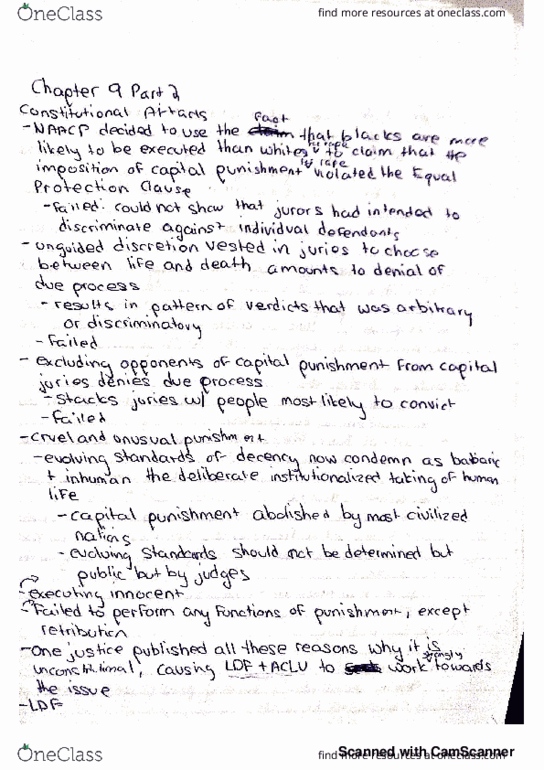 OneClass
find more resources at oneclass.com
Chapter 9 Part 2
Constitutional Attacks
fact
-NAACP decided to use the claim that blacks are more
likely to be executed than whites for rape to claim that the
imposition of capital punishment for rape violated the Equal
Protection Clause
-Failed: could not show that jurors had intended to
discriminate against individual defendants
-unguided discretion vested in juries to choose
between life and death amounts to denial of
due process
-results in pattern of verdicts that was arbitrary
or discriminatory
-Failed
-excluding opponents of capital punishment from capital
juries denies due process
-Stacks juries w/ people most likely to convict
-Failed
-cruel and unusual punishment
-evolving standards of decency now condemn as babaric
+ inhuman the deliberate institutionalized taking of human
life
-capital punishment abolished by most civilized
nations
-evolving standards should not be determined but
public but by judges
-executing innocent
-Failed to perform any functions of punishment, except
retribution
-One justice published all these reasons why it is
unconstitutional, causing LDF + ACLU to work towards
the issue
-LDF
OneClass
find more resources at oneclass.com
Scanned with CamScanner